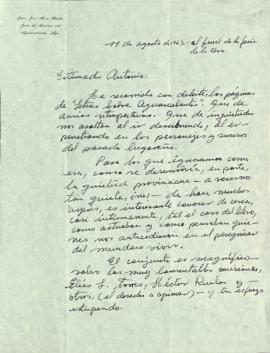 11 de agosto 1963 - al final de la feria
de la Uva.
Estimado Antonio:
He recorrido con deleite, las páginas
de "Letras sobre Aguascalientes". Que de
ansias retrospectivas. Que de inquietudes
nos asaltan al ir descubriendo, al ir
penetrando en los personajes y sucesos
del pasado lugareño.
Para los que ignoramos como
era, como se desenvolvía, en parte,
la quietud provinciana - a veces no
tan quieta, no; - de hace muchos
ayeres, es interesante conocer de cerca,
casi íntimamente, tal el caso del libro,
como actuaban y como pensaban quie-
nes nos antecedieron en el peregrinar
del mundano vivir.
El conjunto es magnífico
salvo las muy lamentables omisiones,
Elías L. Torres, Héctor
otros, (el derecho a opinar) - y tu esfuerzo
estupendo.